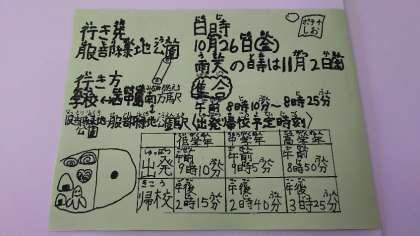 行き先
服部緑地公園
日時
10月26日(金)
雨天の時は11月2日(金)
ポテチ
しお
行き方
集合
午前8時10分〜8時25分
服部緑地公園駅
(出発帰校予定時刻)
低学年 中学年 高学年
しゅっぱつ
出発 午前9時10分 午前9時5分 午前8時50分
きこう
帰校 午後2時15分 午後2時40分 午後3時25分